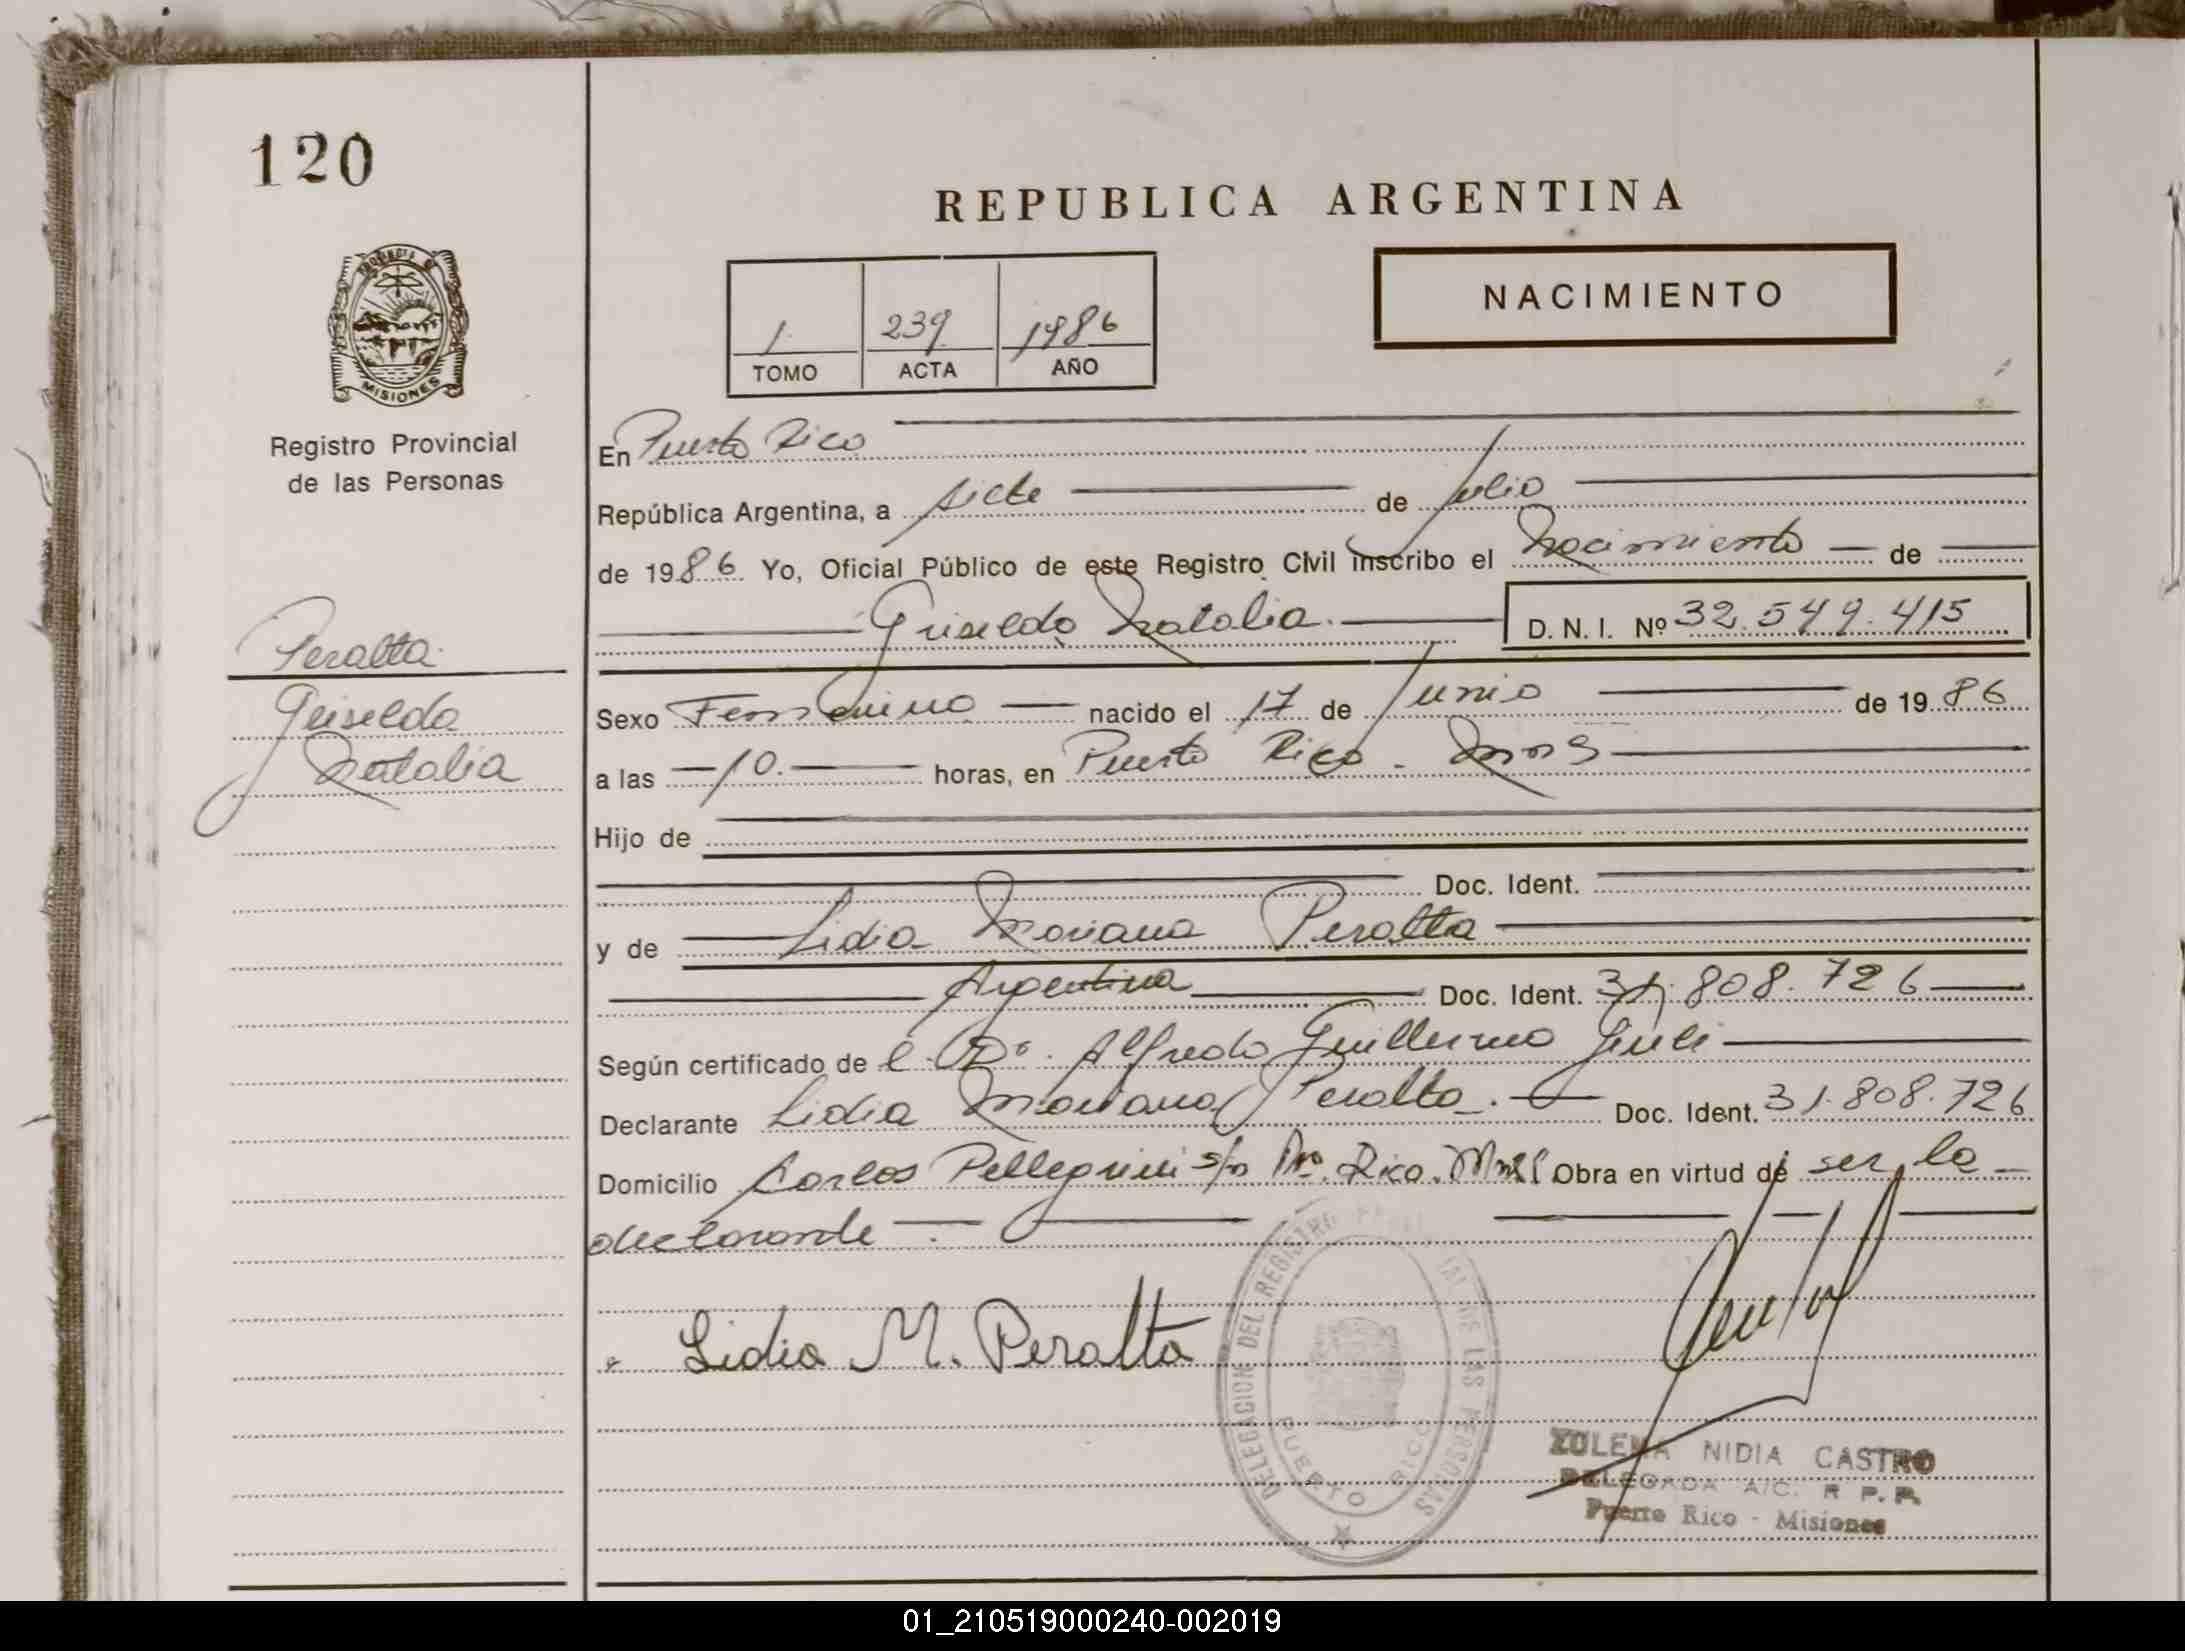 120
REPUBLICA ARGENTINA
NACIMIENTO
1 239 1986
TOMO ACTA AÑO
PROVINCIA DE
MISIONES
Registro Provincial
de las Personas
Peralta
Griselda
Natalia
En Puerto Rico
República Argentina, a siete de Julio
de 1986 Yo, Oficial Público de este Registro Civil inscribo el Nacimiento de
Griselda Natalia. D.N.I. Nº 32.549.415
Sexo Femenino nacido el 17 de Junio de 1986
a las 10. horas, en Puerto Rico - Mns
Hijo de
Doc. Ident.
y de Lidia Mariana Peralta
Argentina Doc. Ident. 31.808.726
Según certificado de el Dr. Alfredo Guillermo
Declarante Lidia Mariana Peralta. Doc. Ident. 31.808.726
Domicilio Carlos Pellegrini s/n Pto. Rico. Mns Obra en virtud de ser la
declarante
Lidia M. Peralta
DELEGACION DEL REGISTRO PROVINCIAL DE LAS PERSONAS
PUERTO RICO
ZULEMA NIDIA CASTRO
DELEGADA A/C. R P. P.
Puerto Rico - Misiones
01_210519000240-002019